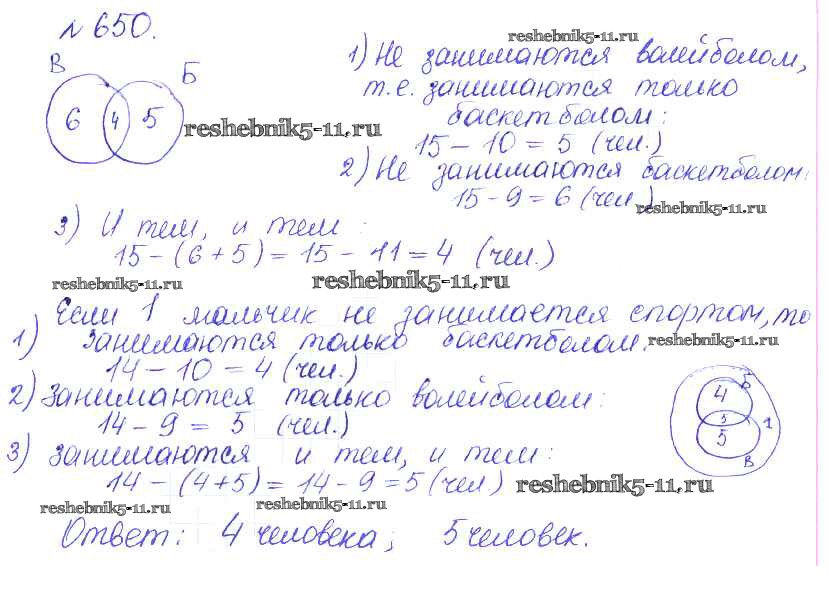 №650.
В
Б
6 4 5
reshebnik5-11.ru
reshebnik5-11.ru
1) Не занимаются волейболом,
т.е. занимаются только
баскетболом:
15 - 10 = 5 (чел.)
2) Не занимаются баскетболом:
15 - 9 = 6 (чел.)
reshebnik5-11.ru
3) И тем, и тем:
15 - (6 + 5) = 15 - 11 = 4 (чел.)
reshebnik5-11.ru
reshebnik5-11.ru
Если 1 мальчик не занимается спортом, то
1) занимаются только баскетболом.
reshebnik5-11.ru
14 - 10 = 4 (чел.)
2) занимаются только волейболом:
14 - 9 = 5 (чел.)
Б
4
5
1
5
В
3) занимаются и тем, и тем:
14 - (4+5) = 14 - 9 = 5 (чел)
reshebnik5-11.ru
reshebnik5-11.ru
reshebnik5-11.ru
Ответ: 4 человека; 5 человек.